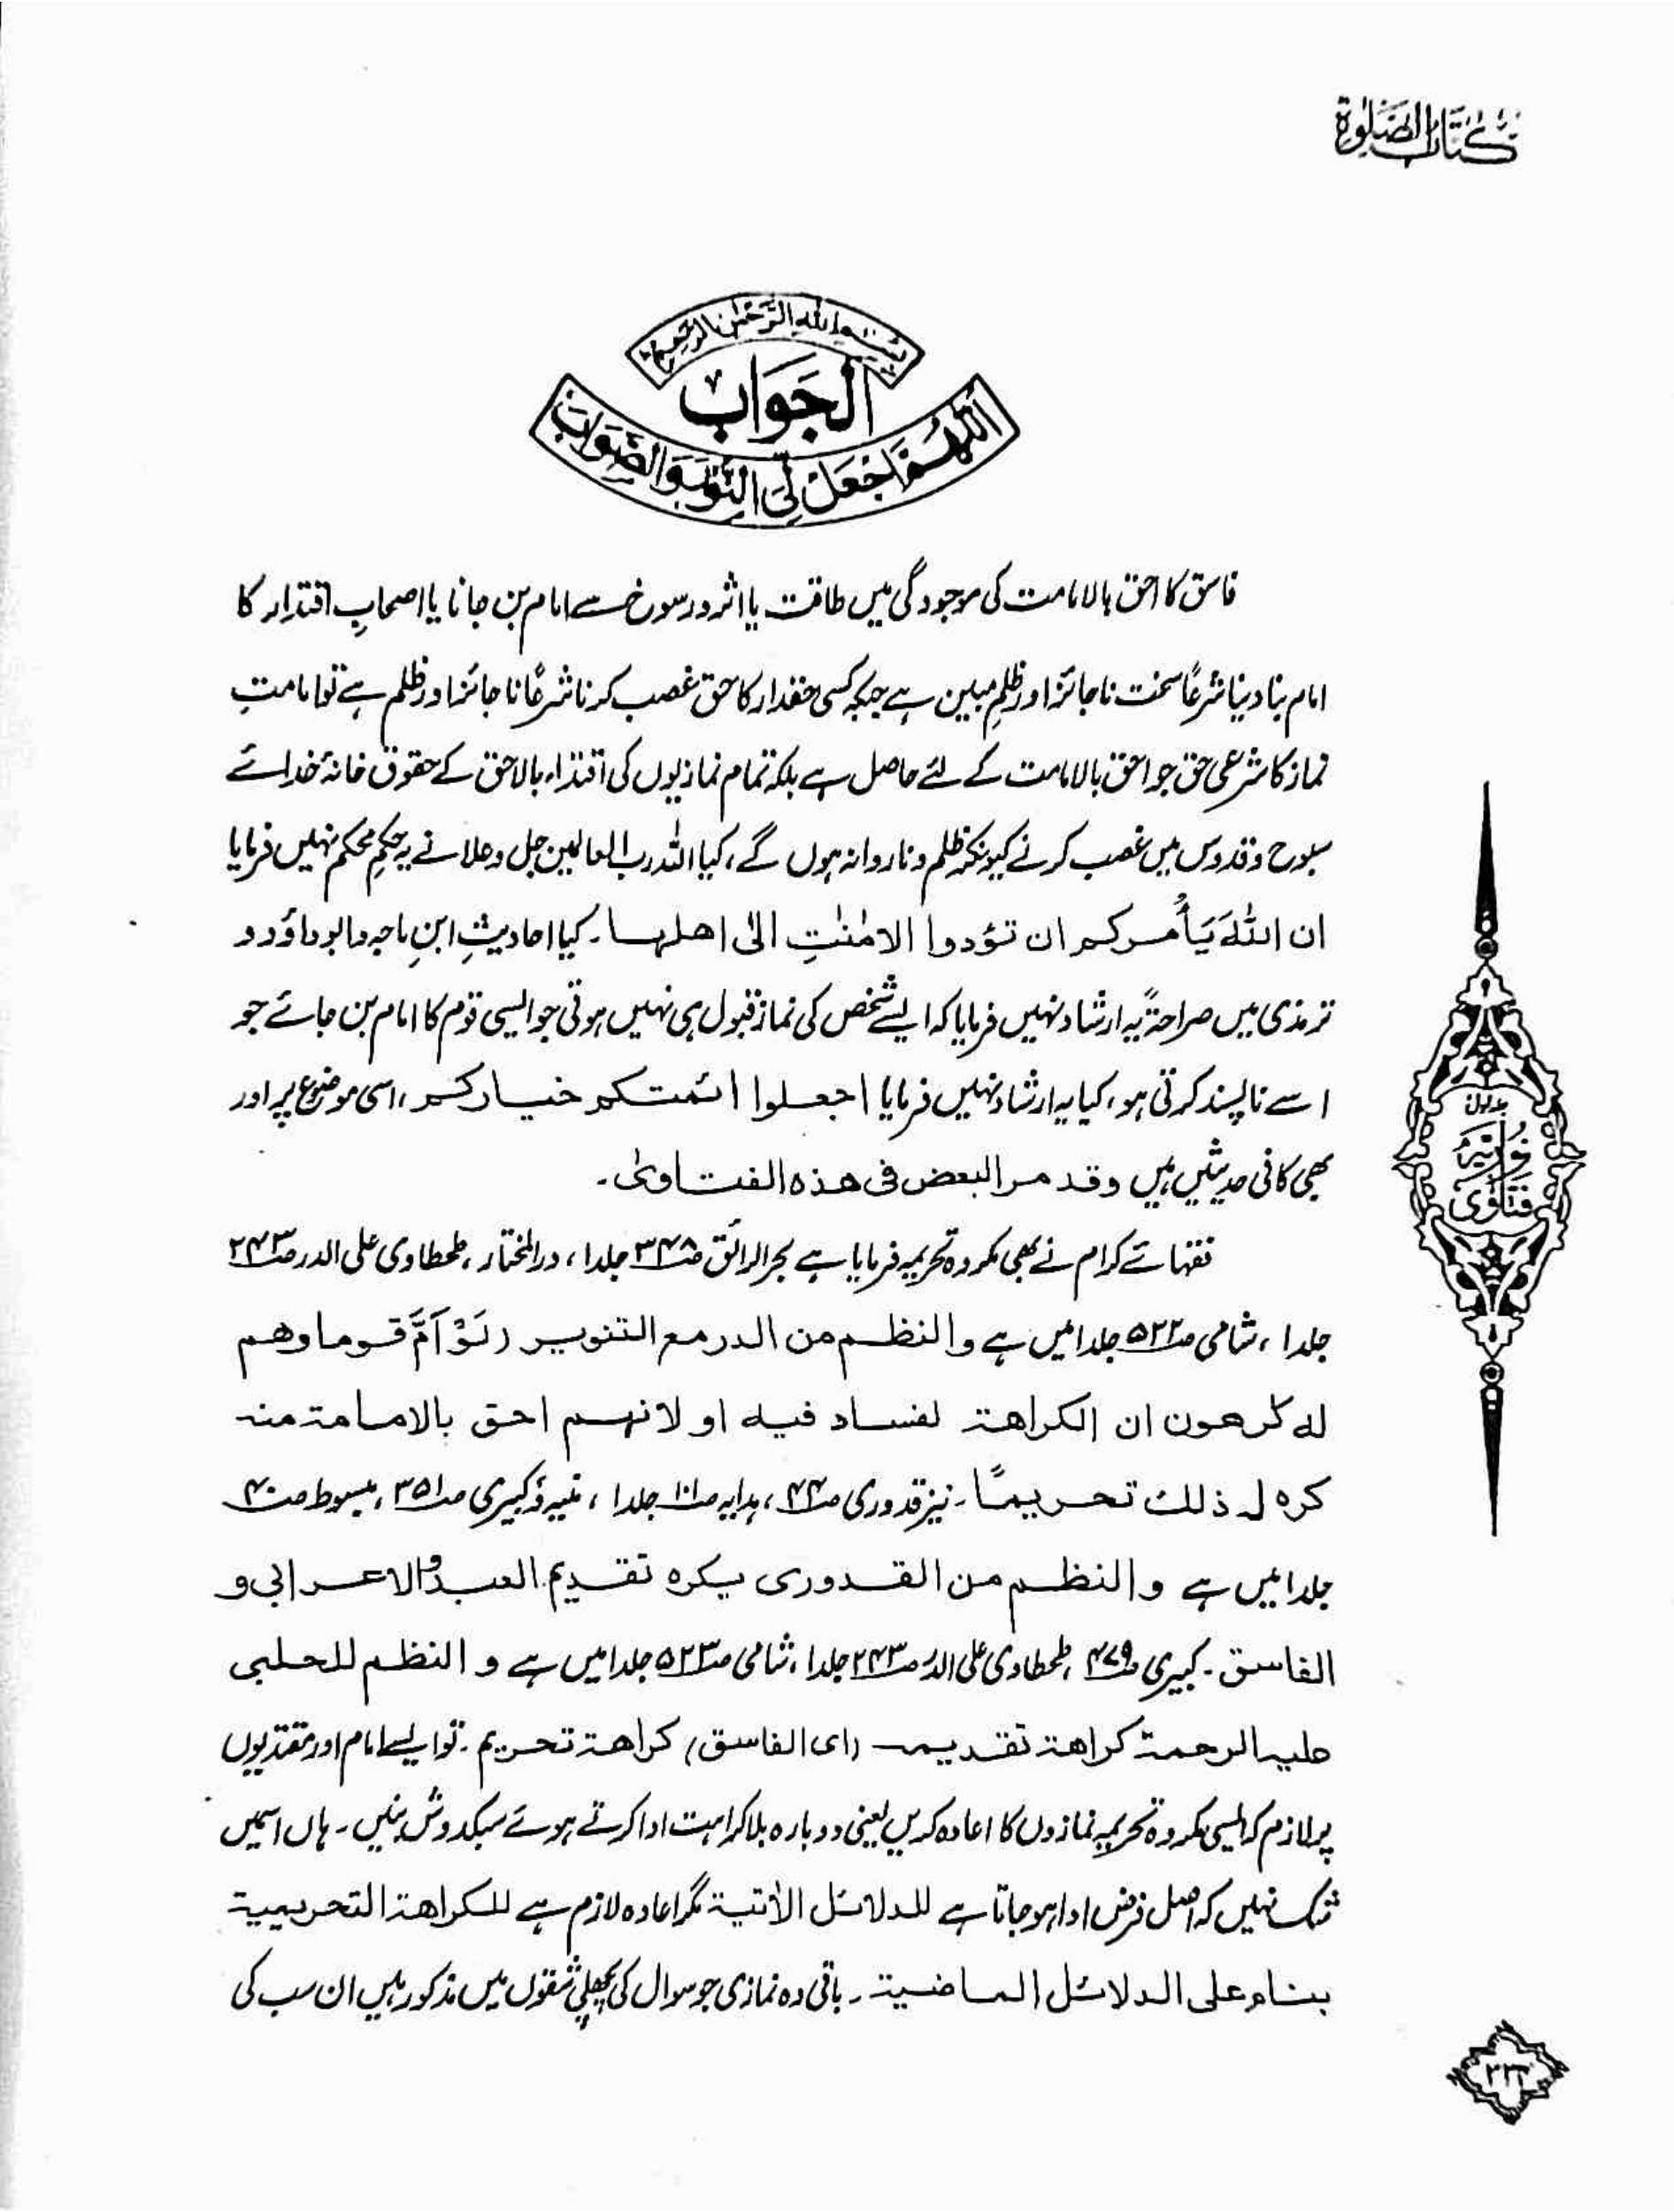 كتاب الصلوة
بسم الله الرحمن الرحيم
الجواب
اللهم اجعل لی النور والصواب
فاسق کا احق بالامامت کی موجودگی میں طاقت یا اثر و رسوخ سے امام بن جانا یا اصحابِ اقتدار کا
امام بنا دینا شرعًا سخت ناجائز اور ظلمِ مبین ہے جبکہ کسی حقدار کا حق غصب کرنا شرعًا ناجائز اور ظلم ہے تو امامتِ
نماز کا شرعی حق جو احق بالامامت کے لئے حاصل ہے بلکہ تمام نمازیوں کی اقتداء بالاحق کے حقوق خانۂ خدائے
سبوح و قدوس میں غصب کرنے کیونکر ظلم و ناروا نہ ہوں گے، کیا اللہ رب العالمین جل وعلا نے یہ حکمِ محکم نہیں فرمایا
ان اللهَ يَأْمُركم ان تؤدوا الامٰنٰتِ الىٰ اهلها۔ کیا احادیثِ ابنِ ماجہ و ابو داؤد و
ترمذی میں صراحۃً یہ ارشاد نہیں فرمایا کہ ایسے شخص کی نماز قبول ہی نہیں ہوتی جو ایسی قوم کا امام بن جائے جو
اسے ناپسند کرتی ہو، کیا یہ ارشاد نہیں فرمایا اجعلوا ائمتكم خياركم، اسی موضوع پر اور
بھی کافی حدیثیں ہیں وقد مر البعض فی هذه الفتاوىٰ۔
فقہائے کرام نے بھی مکروہ تحریمہ فرمایا ہے بحر الرائق ص۳۴۸ جلد۱، در المختار، طحطاوی علی الدر ص۲۴۳
جلد۱، شامی ص۵۲۲ جلد۱ میں ہے والنظم من الدر مع التنوير (لَوْ اَمَّ قوما وهم
له كٰرهون ان الكراهة لفساد فيه او لانهم احق بالامامة منه
كره له ذلك تحريمًا۔ نیز قدوری ص۴۴، ہدایہ ص۱۰۱ جلد۱، منیہ و کبیری ص۳۵۱، مبسوط ص۴۰
جلد۱ میں ہے والنظم من القدوری يكره تقديم العبد والاعرابی و
الفاسق۔ کبیری ص۴۷۹، طحطاوی علی الدر ص۲۴۳ جلد۱، شامی ص۵۲۳ جلد۱ میں ہے والنظم للحلبی
عليه الرحمة كراهة تقديمه (ای الفاسق) كراهة تحريم۔ تو ایسے امام اور مقتدیوں
پر لازم کہ ایسی مکروہ تحریمہ نمازوں کا اعادہ کریں یعنی دوبارہ بلا کراہت ادا کرتے ہوئے سبکدوش بنیں۔ ہاں اسمیں
شک نہیں کہ اصل فرض ادا ہو جاتا ہے للدلائل الآتية مگر اعادہ لازم ہے للكراهة التحريمية
بناء على الدلائل الماضية۔ باقی وہ نمازی جو سوال کی پچھلی شقوں میں مذکور ہیں ان سب کی
جلد اول
فتاوٰی نوریہ